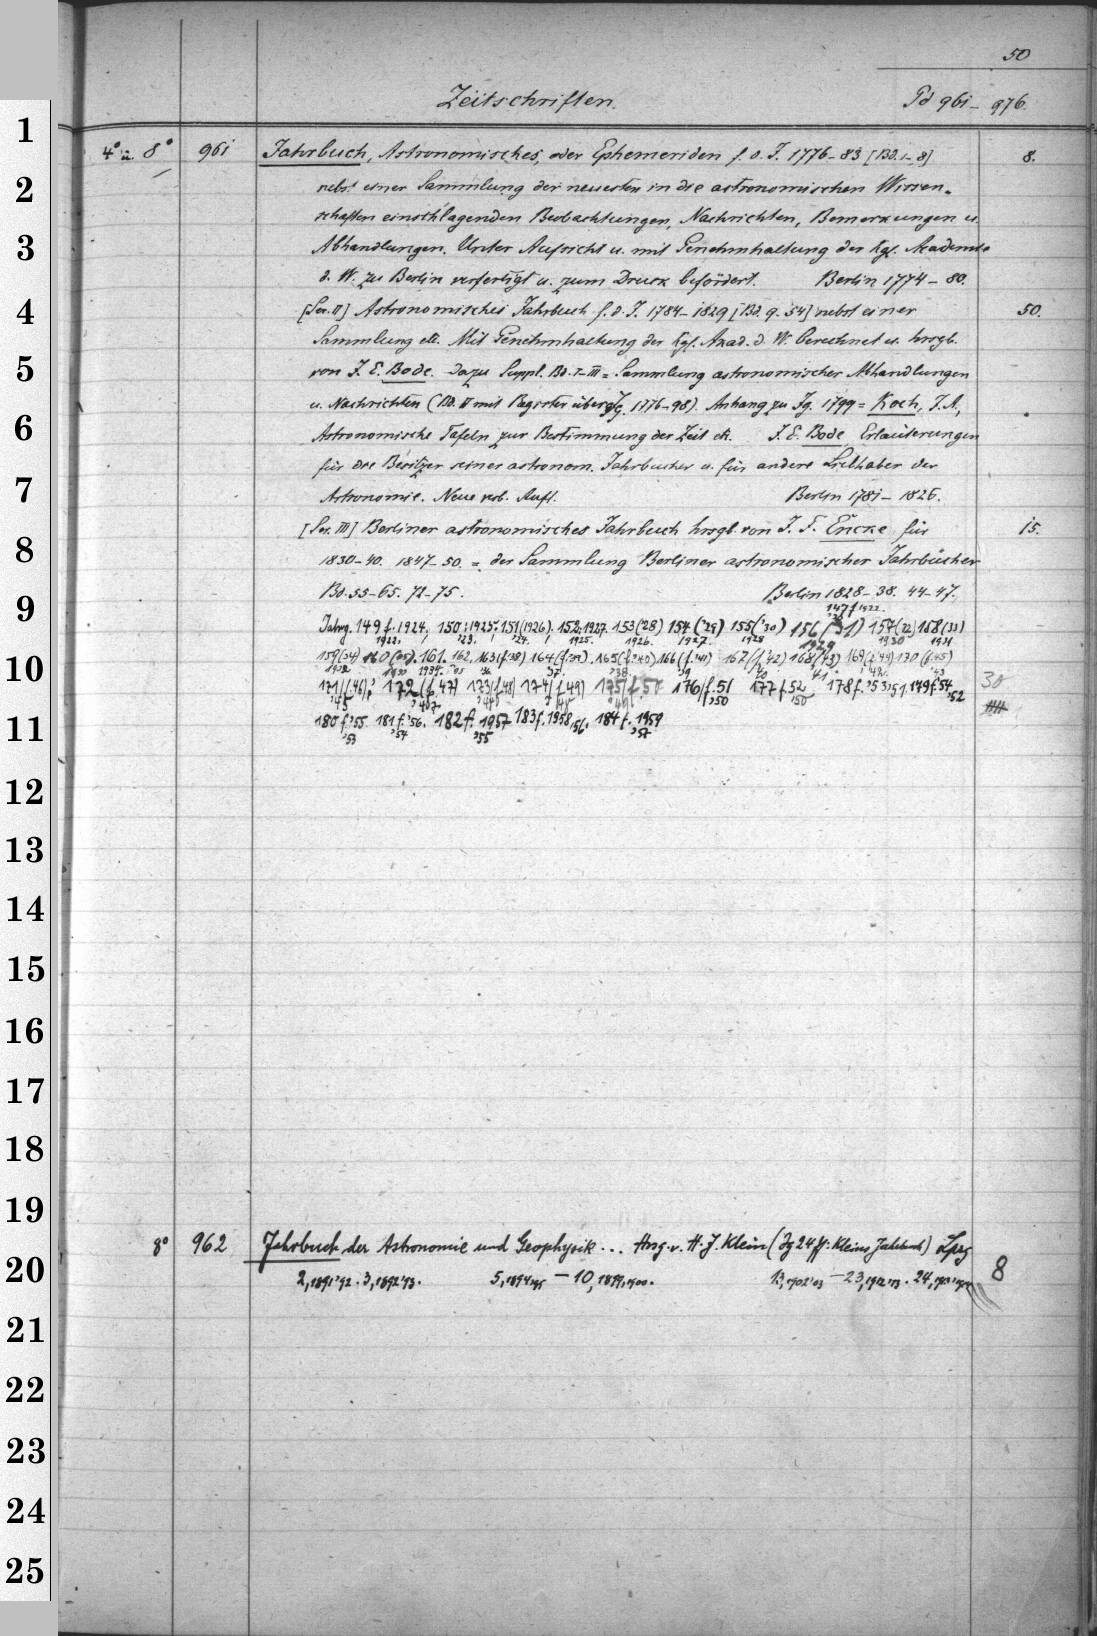 50
Zeitschriften.
Pd 961 – 976.
1
4° u. 8° 961 Jahrbuch, Astronomisches, oder Ephemeriden f. d. J. 1776–83 [Bd. 1–8] 8.
2
nebst einer Sammlung der neuesten in die astronomischen Wissen-
schaften einschlagenden Beobachtungen, Nachrichten, Bemerkungen u.
3
Abhandlungen. Unter Aufsicht u. mit Genehmhaltung der Kgl. Akademie
d. W. zu Berlin verfertigt u. zum Druck befördert. Berlin 1774–80.
4
[Ser. II] Astronomisches Jahrbuch f. d. J. 1784–1829 [Bd. 9–54] nebst einer 50.
Sammlung etc. Mit Genehmhaltung der Kgl. Akad. d. W. berechnet u. hrsgb.
5
von J. E. Bode. Dazu Suppl. Bd. I–III = Sammlung astronomischer Abhandlungen
u. Nachrichten (Bd. II mit Register über Jg. 1776–98). Anhang zu Jg. 1799 = Koch, J. A.,
6
Astronomische Tafeln zur Bestimmung der Zeit etc. J. E. Bode Erläuterungen
für die Besitzer seiner astronom. Jahrbücher u. für andere Liebhaber der
7
Astronomie. Neue verb. Aufl. Berlin 1781–1826.
[Ser. III] Berliner astronomisches Jahrbuch hrsgb. von J. F. Encke für 15.
8
1830–40. 1847–50. = der Sammlung Berliner astronomischer Jahrbücher
Bd. 55–65. 72–75. Berlin 1828–38. 44–47.
9
147 f 1922.
Jahrg. 149 f. 1924, 150 : 1925; 151 (1926). 152, 1927. 153 ('28) 154 ('29) 155 ('30) 156 ('31) 157 (32) 158 (33)
1922. '23. '24. 1925. 1926. 1927. 1928 1929 1930 1931
159 (34) 160 (35). 161. 162, 163 (f. 38) 164 (f. 39). 165 (f. 40) 166 (f. 41) 167 (f. 42) 168 (43) 169 (f. 44) 170 (f. 45)
10
171 (f. 46), 172 (f. 47) 173 (f. 48) 174 (f. 49) 175 f. 50 176 f. 51 177 f. 52 178 f. '53, 51. 179 f. 54, 52 30
11
180 f. '55 181 f. '56. 182 f. 1957 183 f. 1958, 56. 184 f. 1959
'53 '54 '55 '57
12
13
14
15
16
17
18
19
8° 962 Jahrbuch der Astronomie und Geophysik ... Hrsg. v. H. J. Klein (Jg 24 ff: Kleins Jahrbuch) Lpzg
20
2, 1891/92. 3, 1892/93. 5, 1894/95 – 10, 1899/1900. 13, 1902/03 – 23, 1912/13. 24, 8
21
22
23
24
25